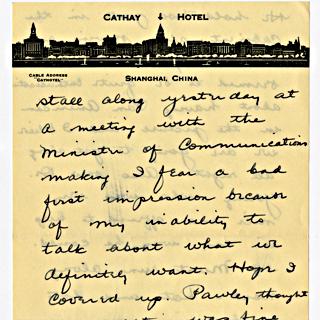 CATHAY HOTEL
CABLE ADDRESS
"CATHOTEL"
SHANGHAI, CHINA
stall along yesterday at
a meeting with the
Ministri of Communications
making I fear a bad
first impression because
of my inability to
talk about what we
definitely want. Hope I
covered up. Pawley thought
was fine